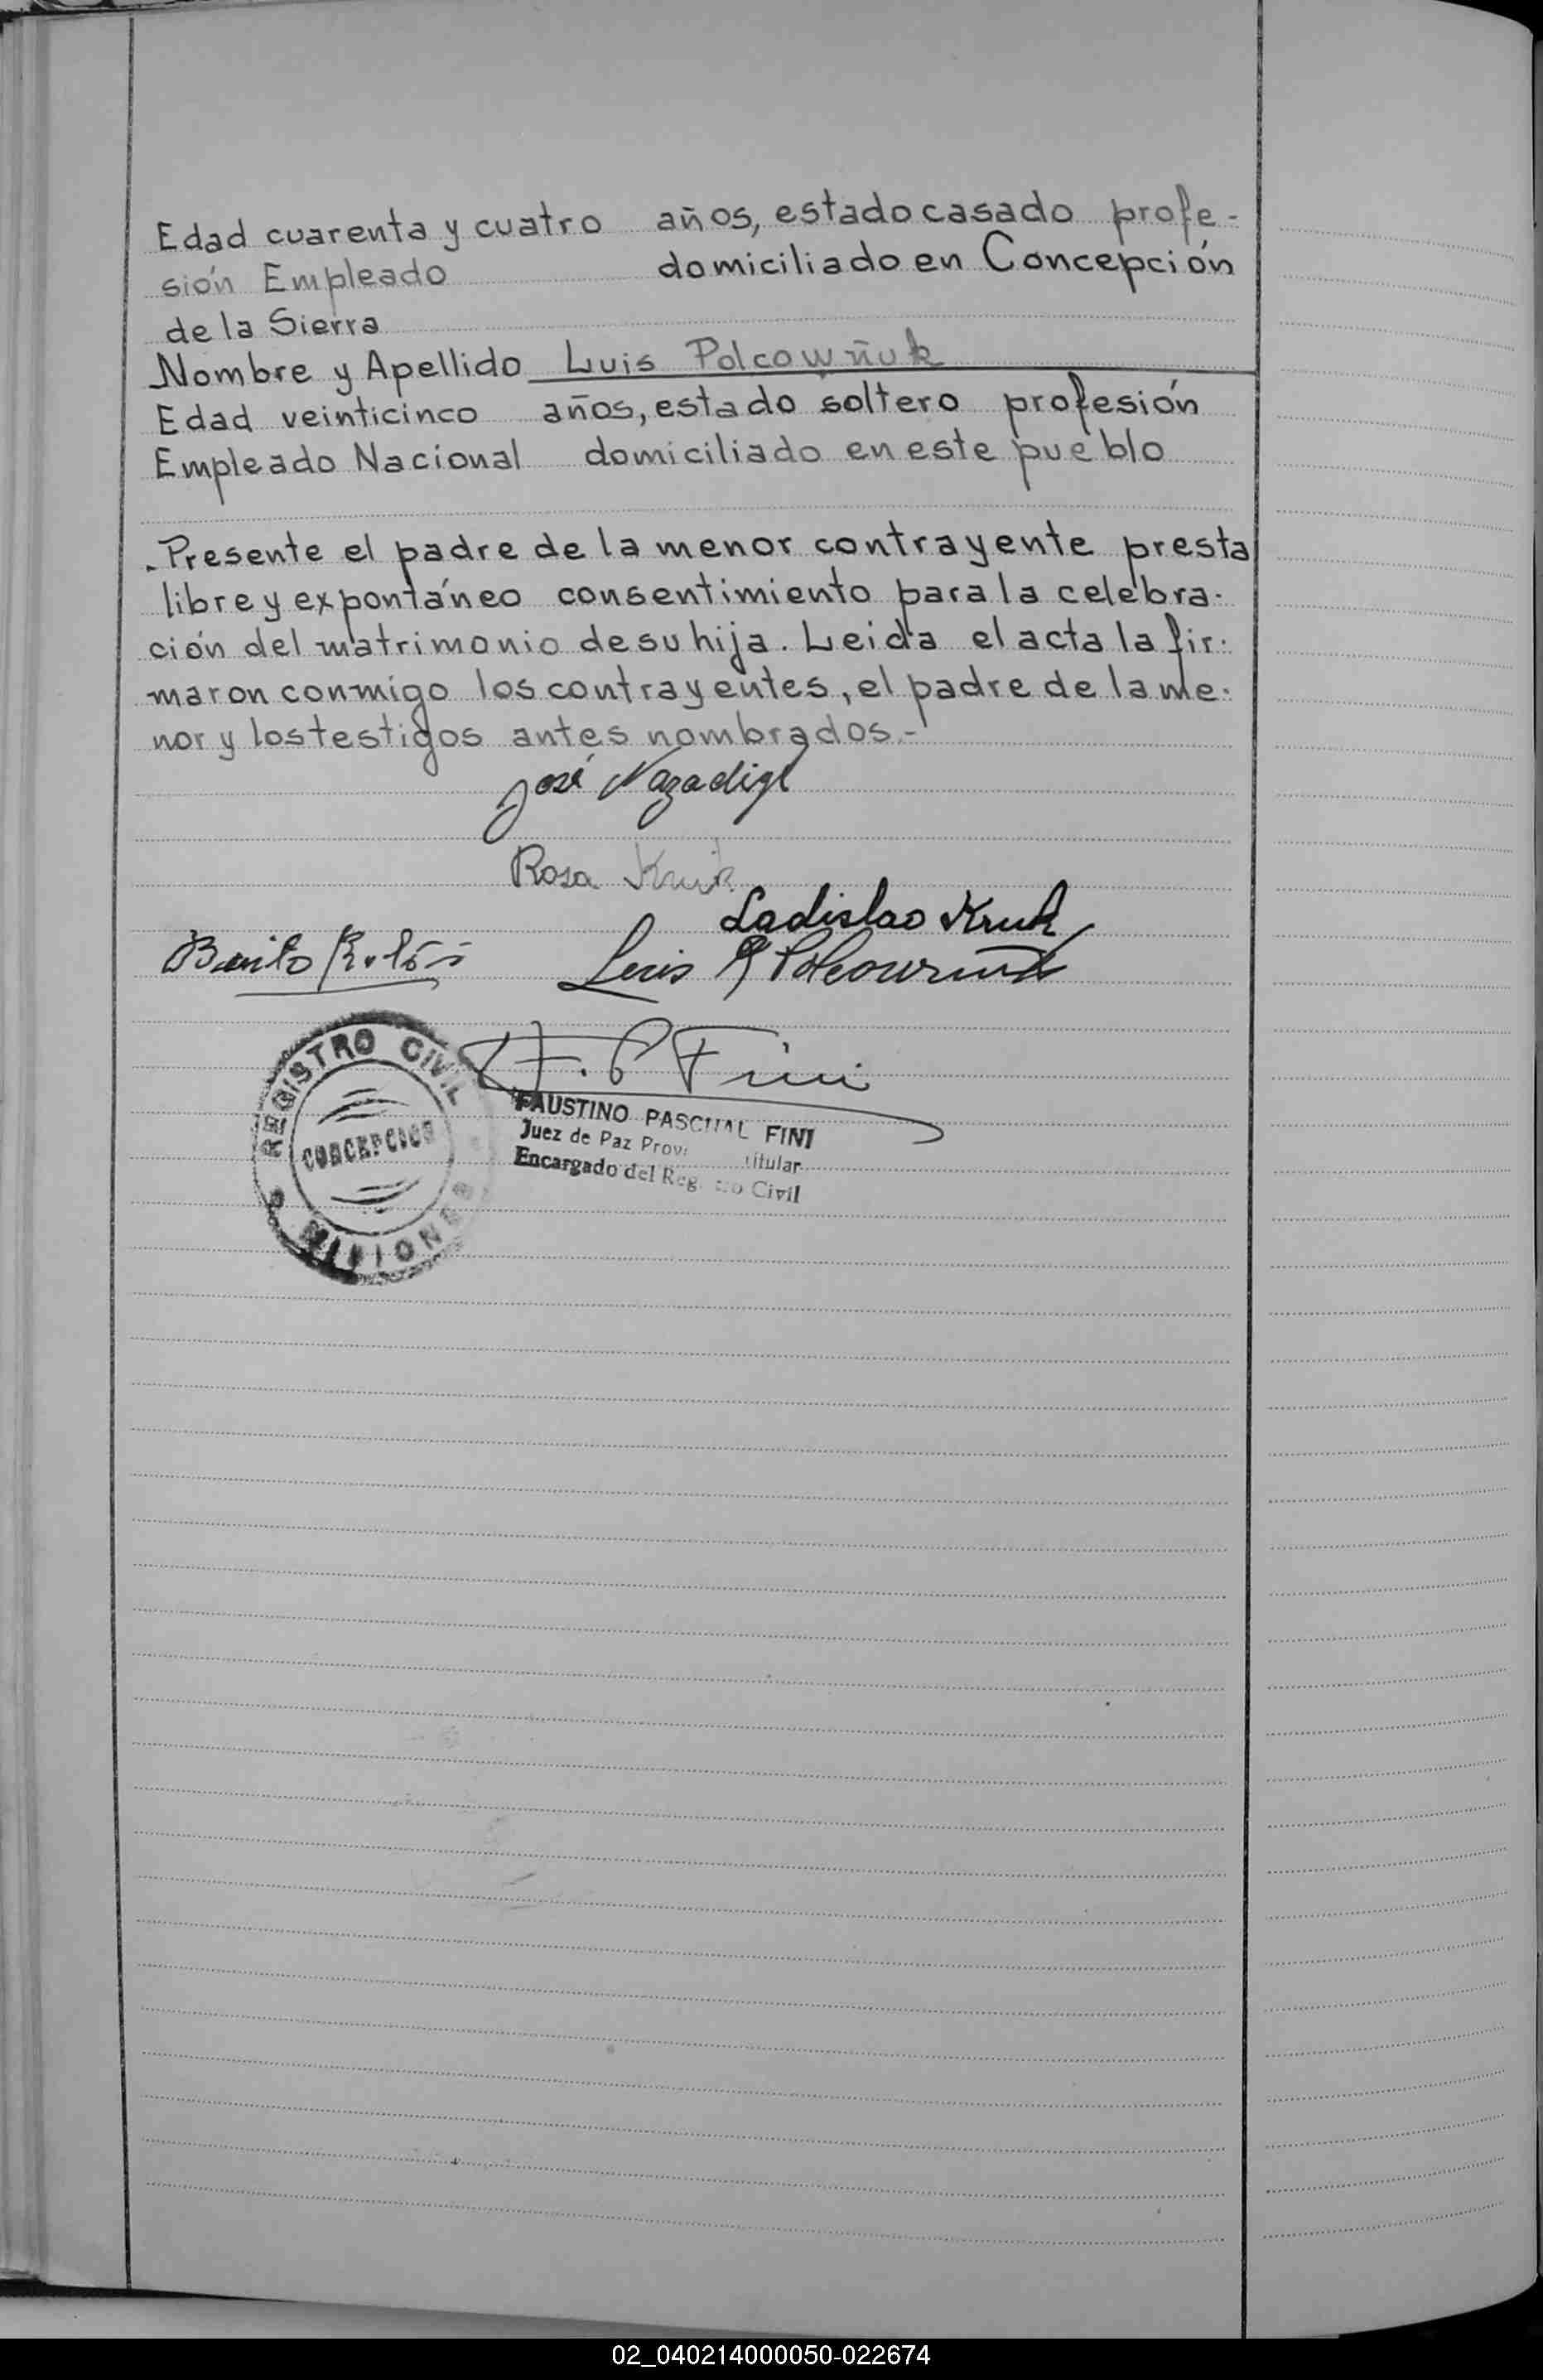 Edad cuarenta y cuatro años, estado casado profe-
sión Empleado domiciliado en Concepción
de la Sierra
Nombre y Apellido Luis Polcowñuk
Edad veinticinco años, estado soltero profesión
Empleado Nacional domiciliado en este pueblo
Presente el padre de la menor contrayente presta
libre y expontáneo consentimiento para la celebra-
ción del matrimonio de su hija. Leida el acta la fir-
maron conmigo los contrayentes, el padre de la me-
nor y los testigos antes nombrados.-
José
Rosa Kruk
Ladislao Kruk
Benito
Luis
F. P. Fini
REGISTRO CIVIL
CONCEPCION
MISIONES
FAUSTINO PASCUAL FINI
Juez de Paz
Encargado del Registro Civil
02_040214000050-022674